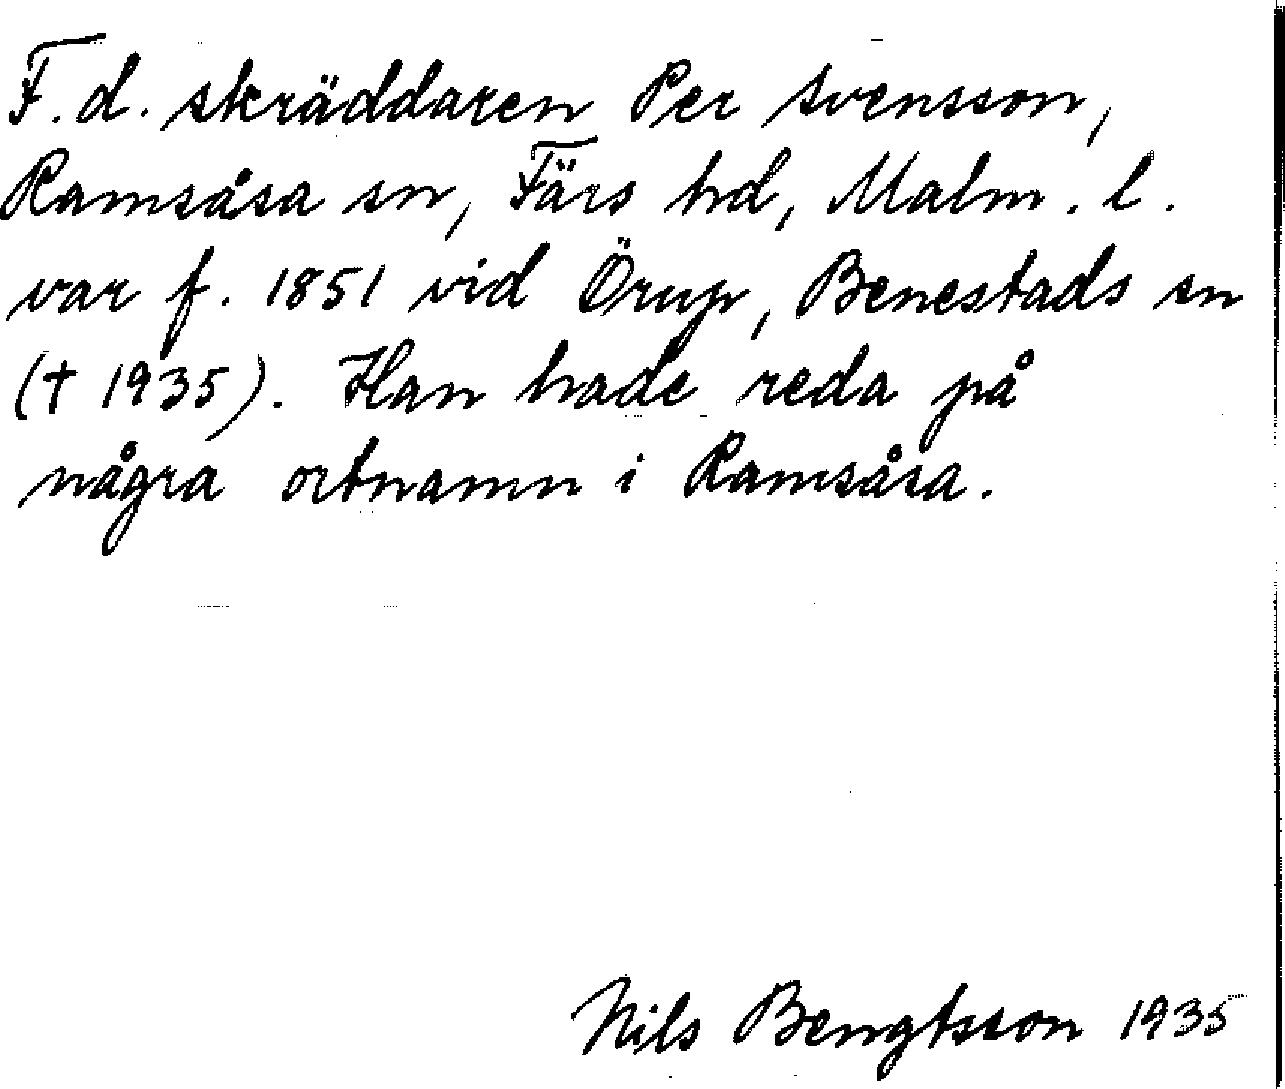 F.d. skräddaren Per Svensson,
Ramsåsa sn, Färs hd, Malm. l.
var f. 1851 vid Örup, Benestads sn
(† 1935). Han hade reda på
några ortnamn i Ramsåsa.
Nils Bengtsson 1935